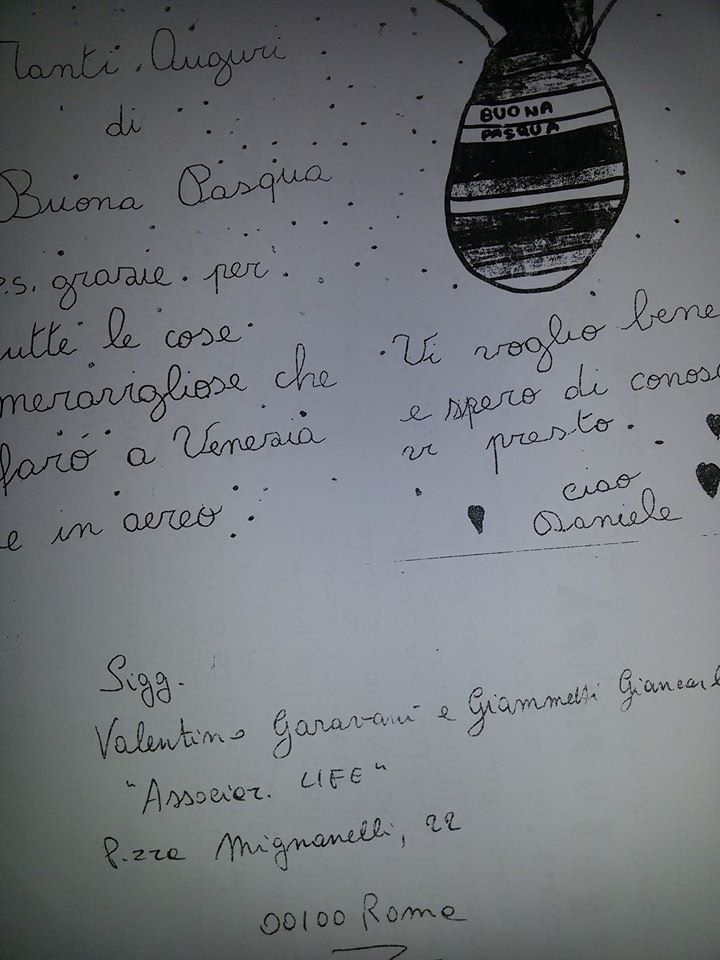 Tanti Auguri
di
Buona Pasqua
P.S. grazie per
tutte le cose
meravigliose che
farò a Venezia
e in aereo
BUONA
PASQUA
Vi voglio bene
e spero di conosc
vi presto.
ciao
Daniele
Sigg.
Valentino Garavani e Giammetti Giancarl
"Associaz. LIFE"
P.zza Mignanelli, 22
00100 Roma